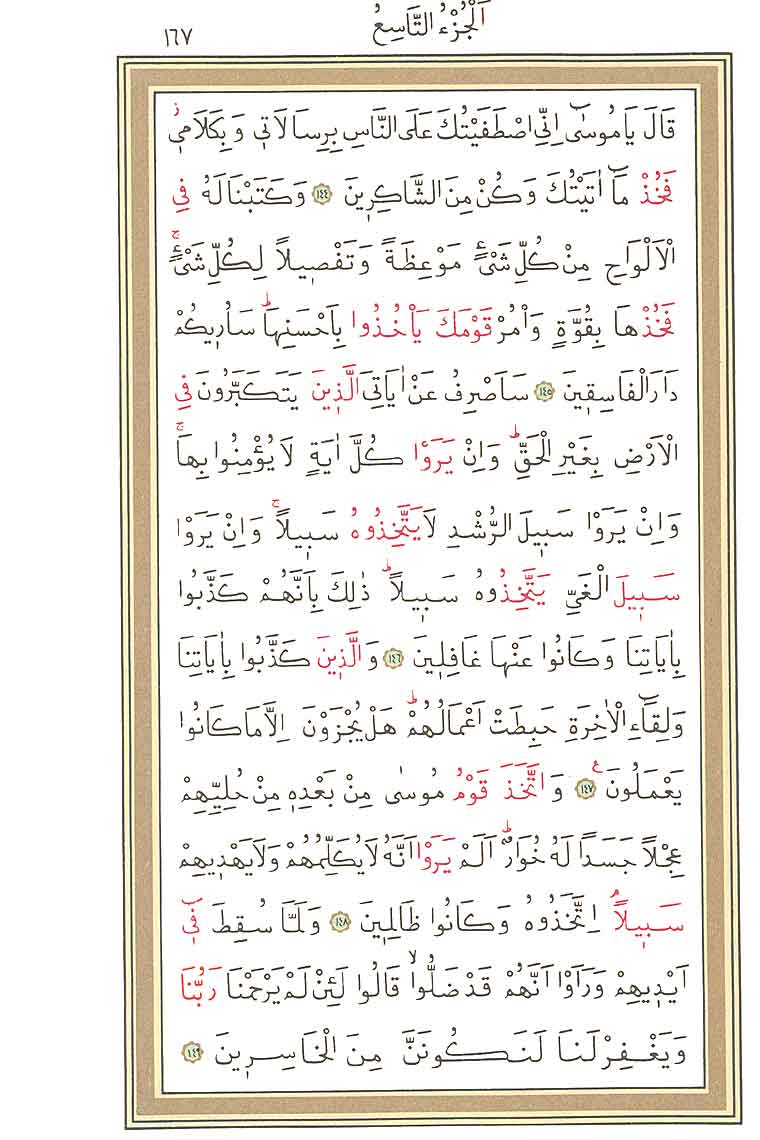 اَلْجُزْءُ التَّاسِعُ
١٦٧
قَالَ يَا مُوسٰٓى اِنِّى اصْطَفَيْتُكَ عَلَى النَّاسِ بِرِسَالَاتٖى وَبِكَلَامٖىۘ ز
فَخُذْ مَٓا اٰتَيْتُكَ وَكُنْ مِنَ الشَّاكِرٖينَ ١٤٤ وَكَتَبْنَا لَهُ فِى
الْاَلْوَاحِ مِنْ كُلِّ شَىْءٍ مَوْعِظَةً وَتَفْصٖيلًا لِكُلِّ شَىْءٍۚ
فَخُذْهَا بِقُوَّةٍ وَاْمُرْ قَوْمَكَ يَاْخُذُوا بِاَحْسَنِهَاؕ سَاُرٖيكُمْ
دَارَ الْفَاسِقٖينَ ١٤٥ سَاَصْرِفُ عَنْ اٰيَاتِىَ الَّذٖينَ يَتَكَبَّرُونَ فِى
الْاَرْضِ بِغَيْرِ الْحَقِّؕ وَاِنْ يَرَوْا كُلَّ اٰيَةٍ لَا يُؤْمِنُوا بِهَاۚ
وَاِنْ يَرَوْا سَبٖيلَ الرُّشْدِ لَا يَتَّخِذُوهُ سَبٖيلًاۚ وَاِنْ يَرَوْا
سَبٖيلَ الْغَىِّ يَتَّخِذُوهُ سَبٖيلًاؕ ذٰلِكَ بِاَنَّهُمْ كَذَّبُوا
بِاٰيَاتِنَا وَكَانُوا عَنْهَا غَافِلٖينَ ١٤٦ وَالَّذٖينَ كَذَّبُوا بِاٰيَاتِنَا
وَلِقَٓاءِ الْاٰخِرَةِ حَبِطَتْ اَعْمَالُهُمْؕ هَلْ يُجْزَوْنَ اِلَّا مَا كَانُوا
يَعْمَلُونَ ١٤٧ ع وَاتَّخَذَ قَوْمُ مُوسٰى مِنْ بَعْدِهٖ مِنْ حُلِيِّهِمْ
عِجْلًا جَسَدًا لَهُ خُوَارٌؕ اَلَمْ يَرَوْا اَنَّهُ لَا يُكَلِّمُهُمْ وَلَا يَهْدٖيهِمْ
سَبٖيلًاۘ اِتَّخَذُوهُ وَكَانُوا ظَالِمٖينَ ١٤٨ وَلَمَّا سُقِطَ فٖٓى
اَيْدٖيهِمْ وَرَاَوْا اَنَّهُمْ قَدْ ضَلُّواۙ قَالُوا لَئِنْ لَمْ يَرْحَمْنَا رَبُّنَا
وَيَغْفِرْ لَنَا لَنَكُونَنَّ مِنَ الْخَاسِرٖينَ ١٤٩